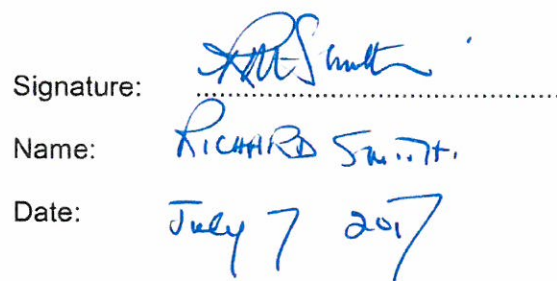 Signature: RM Smith
Name: RICHARD SMITH.
Date: July 7 2017